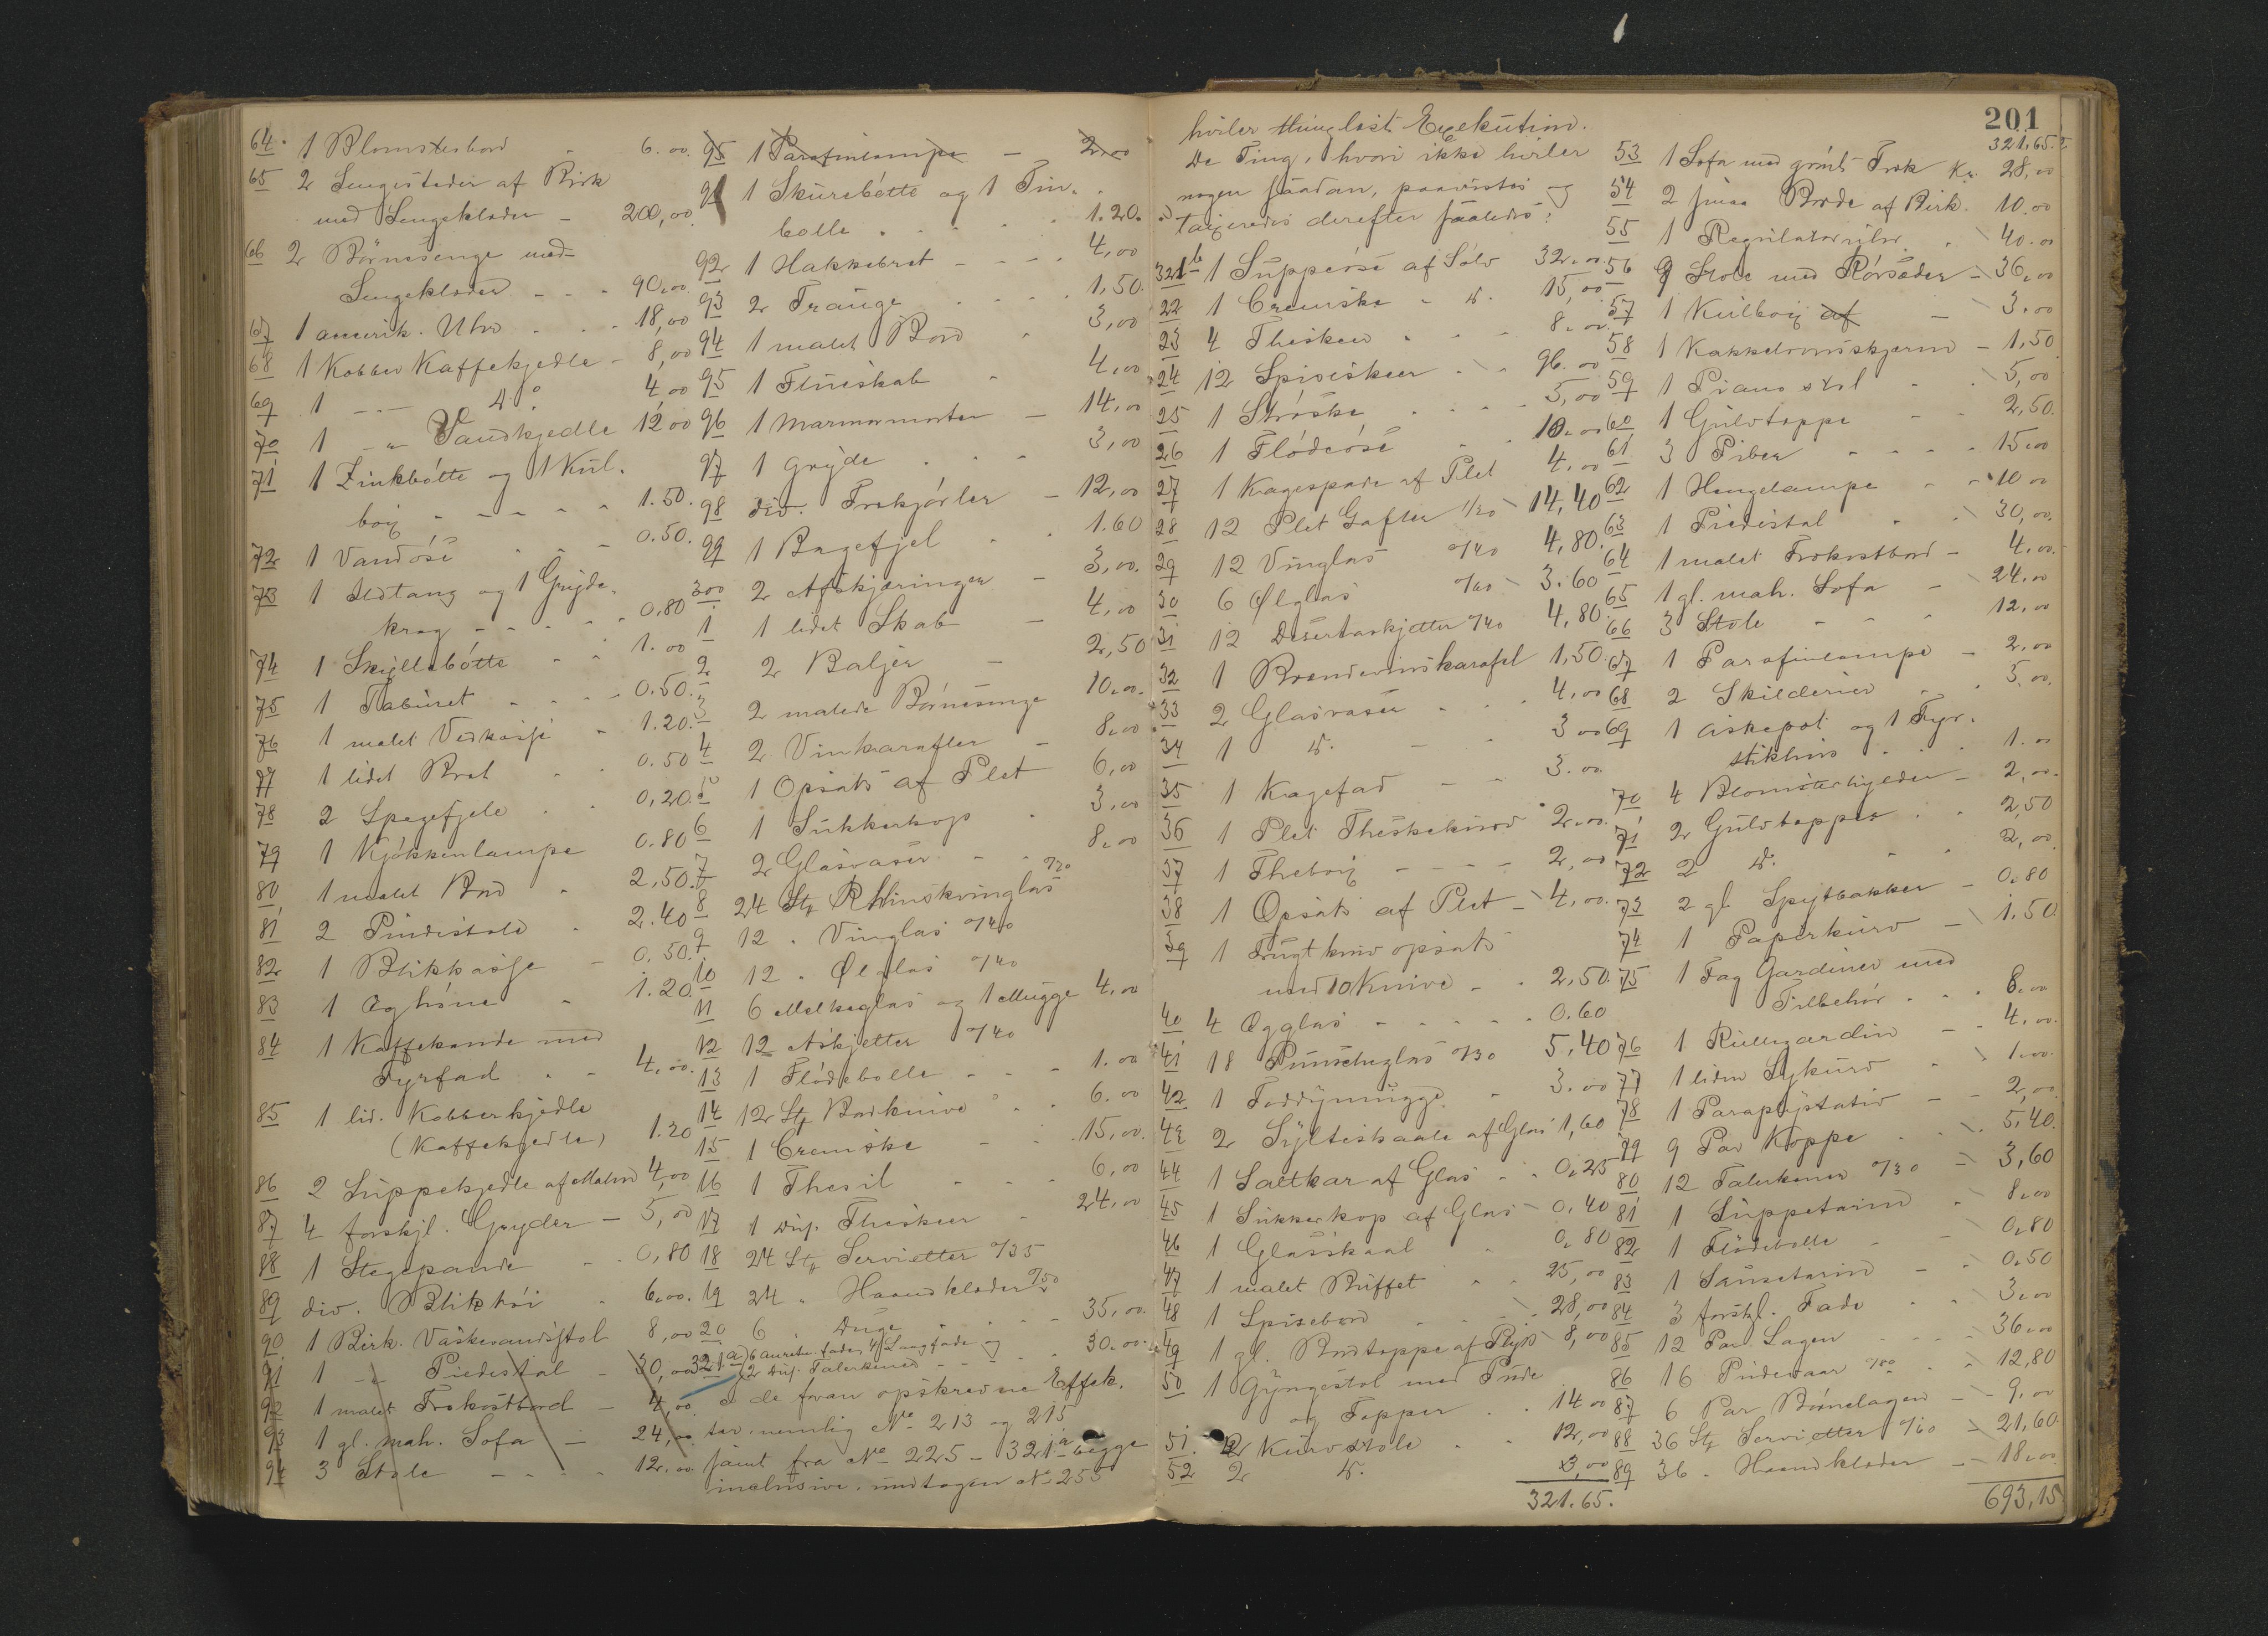 64. 1 Blomsterbord - 6.00
65 2 Sengesteder af Birk
med Sengeklæder - 200,00
66 2 Börnesenge med
Sengeklæder - - - 90.00
67 1 amerik. Uhr . . - 18,00
68 1 Kobber Kaffekjedle - 8,00
69 1 -- do 4.00
70 1 -"- Vandkjedle 12 00
71 1 Zinkbötte og 1 Kul-
box - - - - - 1.50.
72 1 Vandöse - - - 0.50.
73 1 Ildtang og 1 Gryde-
krog - - - - - 0,80
74 1 Skyllebötte - - 1.00
75 1 Taburet - - - - 0.50.
76 1 malet Vedkasse - 1.20.
77 1 lidet Bret . . 0.50
78 2 Spegefjele . . 0,20.
79 1 Kjökkenlampe 0.80
80 1 malet Bord - 2,50.
81 2 Pindestole . 2.40
82 1 Blikkasse - 0.50.
83 1 Æghöne - 1.20.
84 1 Kaffekande med
Fyrfad . - 4,00.
85 1 lid. Kobberkjedle
(Kaffekjedle) 1.20
86 2 Suppekjedle af Malm 4,00
87 4 forskjl. Gryder - 5,00
88 1 Stegepande - - 0,80
89 div. Bliktöi . 6.00.
90 1 Birk. Vaskevandsstol 8,00
91 1 -"- Piedestal - 30,00
92 1 malet Frokostbord - 4,00.
93 1 gl. mah. Sofa - 24,00
94 3 Stole - - - - 12.00
95 1 Parafinlampe - 2.00
91 1 Skurebötte og 1 Tin-
bolle . . . . . 1.20.
92 1 Hakkebret - - - - 4,00
93 2 Trauge . . . . 1,50.
94 1 malet Bord . 3,00
95 1 Flueskab - 4,00
96 1 Marmormorter - 14,00
97 1 Gryde . . . 3,00
98 div. Trekjörler - 12,00
99 1 Bagefjel . . 1.60
300 2 Afskjæringer - 3,00.
1 1 lidet Skab - 4,00
2 2 Baljer - 2,50
3 2 malede Börnesenge 10,00.
4 2 Vinkarafler - 8,00
5 1 Opsats af Plet 6,00
6 1 Sukkerkop . 3,00
7 2 Glasvaser - - 8,00
8 24 St. Rhinskvinglas 0/30
9 12 . Vinglas 0/40
10 12 " Ølglas 0/40
11 6 Melkeglas og 1 Mugge 4,00
12 12 Asjetter 0/40
13 1 Flödebolle - - - 1.00
14 12 St. Bordknive . . 6.00
15 1 Cremske - . 15,00.
16 1 Thesil - - - 6,00
17 1 Dus. Theskeer - 24,00
18 24 St. Servietter 0/35
19 24 " Haandklæder 0/50
20 6 Duge . . - 35,00.
321a 6 Fade, 4 Laagfade og
2 Dus. Talerkener - - . 30.00.
I de foran opskrevne Effek-
ter, nemlig No 213 og 215
samt fra No 225 - 321a begge
inclusive, undtagen No 255
201
hviler thinglæst Exekution.
De Ting, hvori ikke hviler
nogen saadan, paavistes og
taxeredes derefter saaledes:
321b 1 Suppeöse af Sölv 32.00.
22 1 Cremske - do. 15,00
23 4 Theskeer - - - 8.00.
24 12 Spiseskeer . . 96.00
25 1 Ströske . . - - 5,00
26 1 Flödeöse . . 10.00
27 1 Kagespade af Plet 4.00
28 12 Plet Gafler 1/20 14,40
29 12 Vinglas 0/40 4,80.
30 6 Ølglas 0/60 3.60
31 12 Desertaskjetter 0/40 4,80.
32 1 Brændevinskarafel 1,50.
33 2 Glasvaser . . . 4,00
34 1 do. - . 3 00
35 1 Kagefad - - 3.00.
36 1 Plet Theskekurv 2.00.
37 1 Thebox - - - - 2,00
38 1 Opsats af Plet - 4,00.
39 1 Frugtknivopsats
med 10 Knive - . 2,50.
40 4 Ægglas - - - - - 0.60
41 18 Punscheglas 0/30 5,40
42 1 Toddymugge - 3.00
43 2 Sylteskaale af Glas 1,60
44 1 Saltkar af Glas - . 0.25
45 1 Sukkerkop af Glas - 0,40
46 1 Glasskaal - 0,80
47 1 malet Buffet . . 25,00
48 1 Spisebord - - - . 28,00
49 1 gl. Bordteppe af Plyss 8,00
50 1 Gyngestol med Pude
og Tepper . . 14 00
51. 2 Kurvstole . . 12,00
52 2 do. 3,00
321.65.
321.65.
53 1 Sofa med grönt Træk Kr. 28,00
54 2 smaa Borde af Birk. 10.00
55 1 Regulatoruhr . 40.00
56 9 Stole med Rörsæder - 36,00
57 1 Kulbox af - 3.00
58 1 Kakkelovnsskjerm - 1,50
59 1 Pianostol . . 5,00
60 1 Gulvteppe - - 2,50.
61 3 Piber - - - - 15.00
62 1 Hengelampe - - 10 00
63 1 Piedestal . . 30,00.
64 1 malet Frokostbord - 4,00.
65 1 gl. mah. Sofa - 24.00
66 3 Stole - - - 12.00
67 1 Parafinlampe - 2.00
68 2 Skilderier . . 5.00.
69 1 Askepot og 1 Fyr-
stikhus . . . 1.00
70 4 Blomsterhylder - 2,00.
71 2 Gulvtepper . . 2,50
72 2 do. - - 2,00.
73 2 gl. Spytbakker - 0.80
74 1 Papirkurv - 1.50.
75 1 Fag Gardiner med
Tilbehör . . . 8.00
76 1 Rullegardin - - 4.00.
77 1 liden Sykurv . 1.00.
78 1 Paraplystativ - - 2,00.
79 9 Par Koppe . . 5.40.
80 12 Talerkener 0/30 - 3,60
81 1 Suppeterin - 8.00
82 1 Flödebolle - - 0.80
83 1 Sauseterin - - 0.50
84 3 forskjl. Fade . . 3.00
85 12 Par Lagen - - - 36.00
86 16 Pudevaar 0/80 . . 12,80
87 6 Par Börnelagen - - 9.00
88 36 St. Servietter 0/60 - 21,60.
89 36 - Haandklæder - - 18.00
693,15